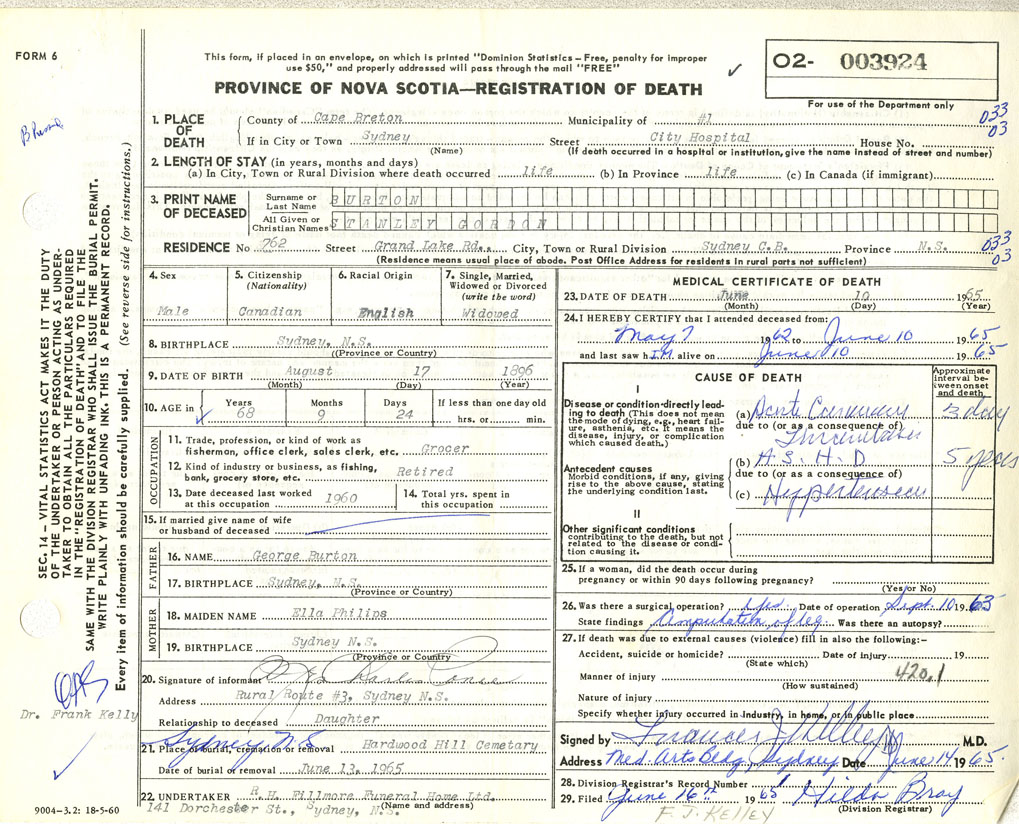 FORM 6
This form, if placed in an envelope, on which is printed "Dominion Statistics – Free, penalty for improper
use $50," and properly addressed will pass through the mail "FREE"
✓
O2- 003924
PROVINCE OF NOVA SCOTIA—REGISTRATION OF DEATH
For use of the Department only
1. PLACE OF DEATH
County of Cape Breton Municipality of #1 033
If in City or Town Sydney Street City Hospital House No. 03
(Name) (If death occurred in a hospital or institution, give the name instead of street and number)
2. LENGTH OF STAY (in years, months and days)
(a) In City, Town or Rural Division where death occurred life (b) In Province life (c) In Canada (if immigrant)
3. PRINT NAME OF DECEASED
Surname or Last Name BURTON
All Given or Christian Names STANLEY GORDON
RESIDENCE No 762 Street Grand Lake Rd., City, Town or Rural Division Sydney C.B. Province N.S. 033
(Residence means usual place of abode. Post Office Address for residents in rural parts not sufficient) 03
4. Sex
Male
5. Citizenship
(Nationality)
Canadian
6. Racial Origin
English
7. Single, Married,
Widowed or Divorced
(write the word)
Widowed
8. BIRTHPLACE Sydney, N.S.
(Province or Country)
9. DATE OF BIRTH August 17 1896
(Month) (Day) (Year)
10. AGE in Years Months Days If less than one day old
✓ 68 9 24 hrs. or min.
OCCUPATION
11. Trade, profession, or kind of work as
fisherman, office clerk, sales clerk, etc. Grocer
12. Kind of industry or business, as fishing,
bank, grocery store, etc. Retired
13. Date deceased last worked
at this occupation 1960
14. Total yrs. spent in
this occupation
15. If married give name of wife
or husband of deceased
FATHER
16. NAME George Burton
17. BIRTHPLACE Sydney, N.S.
(Province or Country)
MOTHER
18. MAIDEN NAME Ella Philips
19. BIRTHPLACE Sydney N.S.
(Province or Country)
20. Signature of informant
Address Rural Route #3, Sydney N.S.
Relationship to deceased Daughter
Sydney N.S.
21. Place of burial, cremation or removal Hardwood Hill Cemetary
Date of burial or removal June 13, 1965
22. UNDERTAKER R.H. Fillmore Funeral Home Ltd.
(Name and address)
141 Dorchester St., Sydney, N.S.
MEDICAL CERTIFICATE OF DEATH
23. DATE OF DEATH June 10 1965
(Month) (Day) (Year)
24. I HEREBY CERTIFY that I attended deceased from:
May 7 1962 to June 10 1965
and last saw him alive on June 10 1965
CAUSE OF DEATH
Approximate interval between onset and death
I
Disease or condition-directly leading
to death (This does not mean
the mode of dying, e.g., heart failure,
asthenia, etc. It means the
disease, injury, or complication
which caused death.)
(a) Acute Coronary 3 day
due to (or as a consequence of)
Thrombosis
Antecedent causes
Morbid conditions, if any, giving
rise to the above cause, stating
the underlying condition last.
(b) A.S.H.D 5 years
due to (or as a consequence of)
(c) Hypertension
II
Other significant conditions
contributing to the death, but not
related to the disease or condition
causing it.
25. If a woman, did the death occur during
pregnancy or within 90 days following pregnancy?
(Yes or No)
26. Was there a surgical operation? Yes Date of operation Sept. 10 1963
State findings Amputation of leg Was there an autopsy?
27. If death was due to external causes (violence) fill in also the following:–
Accident, suicide or homicide? Date of injury 19
(State which)
Manner of injury 420.1
(How sustained)
Nature of injury
Specify whether injury occurred in industry, in home, or in public place
Signed by Francis J Kelley M.D.
Address Med. Arts Bldg, Sydney Date June 14 1965.
28. Division Registrar's Record Number
29. Filed June 16th 1965 Hilda Bray
(Division Registrar)
F. J. KELLEY
SEC. 14 – VITAL STATISTICS ACT MAKES IT THE DUTY
OF THE UNDERTAKER OR PERSON ACTING AS UNDERTAKER
TO OBTAIN ALL THE PARTICULARS REQUIRED
IN THE "REGISTRATION OF DEATH" AND TO FILE THE
SAME WITH THE DIVISION REGISTRAR WHO SHALL ISSUE THE BURIAL PERMIT.
WRITE PLAINLY WITH UNFADING INK. THIS IS A PERMANENT RECORD.
Every item of information should be carefully supplied. (See reverse side for instructions.)
Dr. Frank Kelly
9004–3.2: 18-5-60